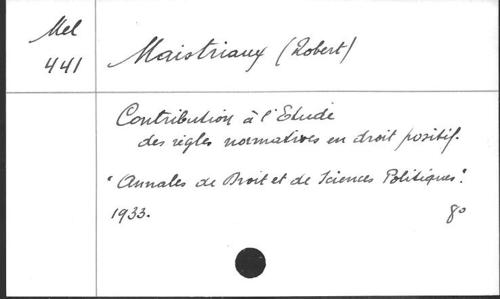 Mel
441
Maistriaux (Robert)
Contribution à l'Etude
des règles normatives en droit positif.
"Annales de Droit et de Sciences Politiques".
1933. 8o